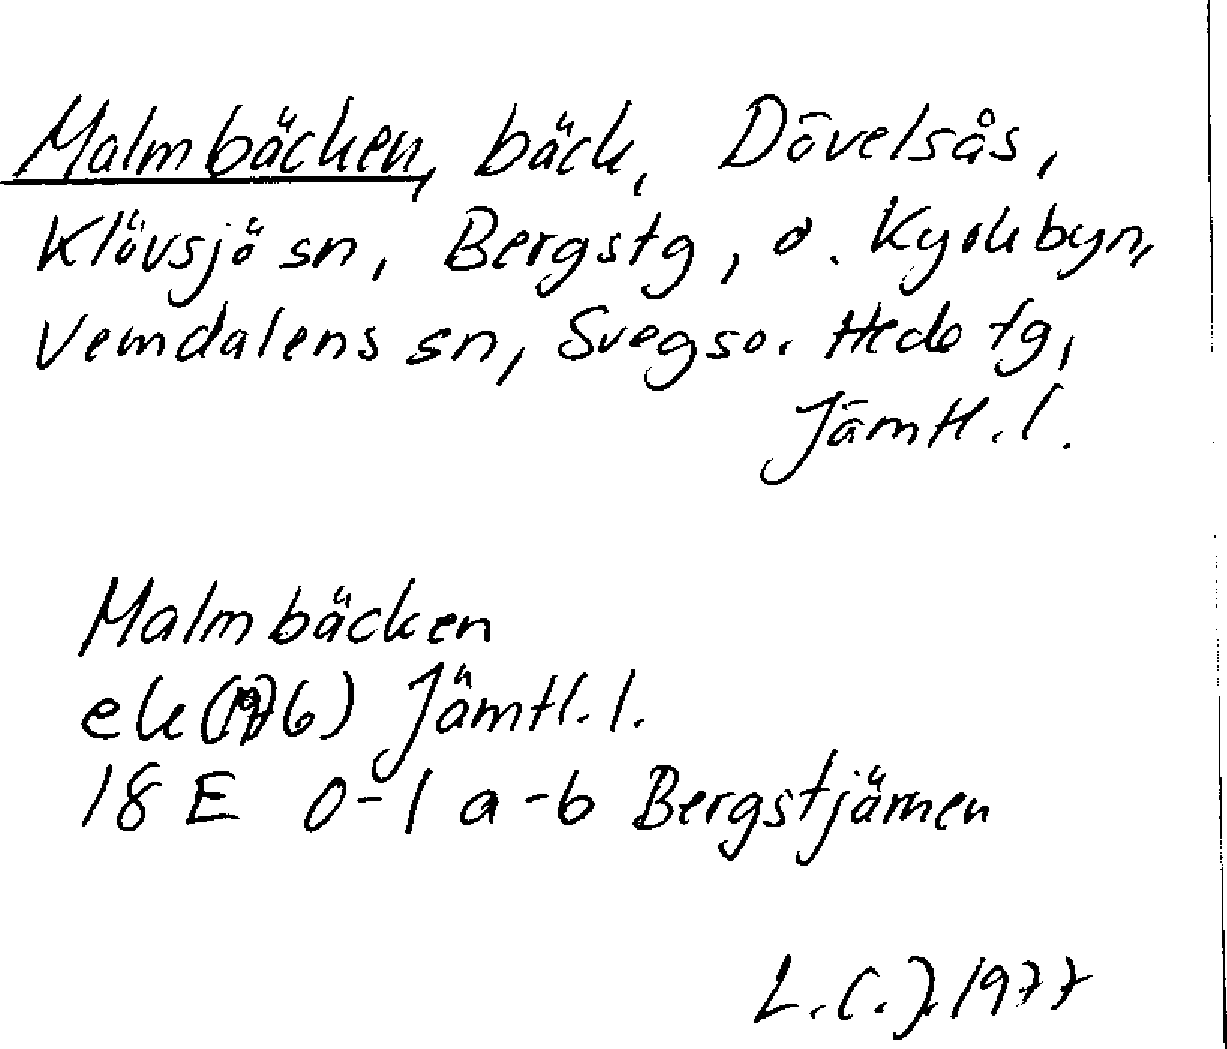 Malmbäcken, bäck, Dövelsås,
Klövsjö sn, Bergstg, o. Kyrkbyn,
Vemdalens sn, Svegs o. Hede tg,
Jämtl. l.
Malmbäcken
ek (1976) Jämtl. l.
18 E 0-1 a-b Bergstjärnen
L.C.J. 1977